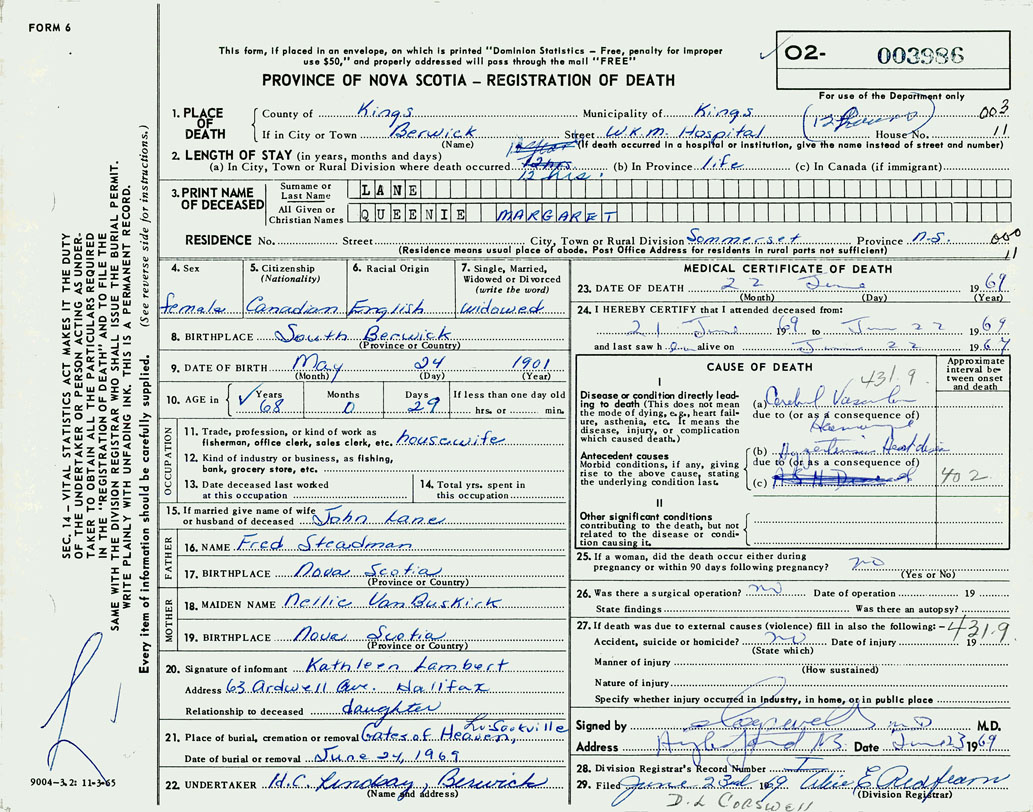 FORM 6
This form, if placed in an envelope, on which is printed "Dominion Statistics – Free, penalty for improper
use $50," and properly addressed will pass through the mail "FREE"
PROVINCE OF NOVA SCOTIA – REGISTRATION OF DEATH
O2- 003986
For use of the Department only
003
11
1. PLACE OF DEATH County of Kings Municipality of Kings
If in City or Town Berwick Street W.K.M. Hospital (12 hours) House No.
(Name) (If death occurred in a hospital or institution, give the name instead of street and number)
2. LENGTH OF STAY (in years, months and days)
(a) In City, Town or Rural Division where death occurred 12 hrs. (b) In Province life (c) In Canada (if immigrant)
3. PRINT NAME OF DECEASED Surname or Last Name LANE
All Given or Christian Names QUEENIE MARGARET
RESIDENCE No. Street City, Town or Rural Division Sommerset Province N.S. 000
11
(Residence means usual place of abode. Post Office Address for residents in rural parts not sufficient)
4. Sex 5. Citizenship (Nationality) 6. Racial Origin 7. Single, Married, Widowed or Divorced (write the word)
female Canadian English widowed
8. BIRTHPLACE South Berwick
(Province or Country)
9. DATE OF BIRTH May 24 1901
(Month) (Day) (Year)
10. AGE in Years 68 Months 0 Days 29 If less than one day old hrs. or min.
OCCUPATION
11. Trade, profession, or kind of work as
fisherman, office clerk, sales clerk, etc. housewife
12. Kind of industry or business, as fishing,
bank, grocery store, etc.
13. Date deceased last worked
at this occupation
14. Total yrs. spent in
this occupation
15. If married give name of wife
or husband of deceased John Lane
FATHER
16. NAME Fred Steadman
17. BIRTHPLACE Nova Scotia
(Province or Country)
MOTHER
18. MAIDEN NAME Nellie VanBuskirk
19. BIRTHPLACE Nova Scotia
(Province or Country)
20. Signature of informant Kathleen Lambert
Address 63 Ardwell Ave. Halifax
Relationship to deceased daughter
21. Place of burial, cremation or removal Gates of Heaven, Lr Sackville
Date of burial or removal June 24, 1969
22. UNDERTAKER H.C. Lindsay, Berwick
(Name and address)
MEDICAL CERTIFICATE OF DEATH
23. DATE OF DEATH 22 June 1969
(Month) (Day) (Year)
24. I HEREBY CERTIFY that I attended deceased from:
21 June 1969 to June 22 1969
and last saw h alive on June 22 1969
CAUSE OF DEATH
Approximate interval between onset and death
431.9
I
Disease or condition directly leading to death (This does not mean
the mode of dying, e.g., heart failure, asthenia, etc. It means the
disease, injury, or complication
which caused death.)
(a) Cerebral Vascular
due to (or as a consequence of)
Hemorrhage
Antecedent causes
Morbid conditions, if any, giving
rise to the above cause, stating
the underlying condition last.
(b) Hypertensive Heart disease
due to (or as a consequence of)
(c)
402
II
Other significant conditions
contributing to the death, but not
related to the disease or condition causing it.
25. If a woman, did the death occur either during
pregnancy or within 90 days following pregnancy? no
(Yes or No)
26. Was there a surgical operation? no Date of operation 19
State findings Was there an autopsy?
27. If death was due to external causes (violence) fill in also the following: – 431.9
Accident, suicide or homicide? no Date of injury 19
(State which)
Manner of injury
(How sustained)
Nature of injury
Specify whether injury occurred in Industry, in home, or in public place
Signed by M.D. M.D.
Address Date June 23 1969
28. Division Registrar's Record Number
29. Filed June 23rd 1969 Alice E. Redfearn
(Division Registrar)
D. L CORSWELL
SEC. 14 – VITAL STATISTICS ACT MAKES IT THE DUTY
OF THE UNDERTAKER OR PERSON ACTING AS UNDER-
TAKER TO OBTAIN ALL THE PARTICULARS REQUIRED
IN THE "REGISTRATION OF DEATH" AND TO FILE THE
SAME WITH THE DIVISION REGISTRAR WHO SHALL ISSUE THE BURIAL PERMIT.
WRITE PLAINLY WITH UNFADING INK. THIS IS A PERMANENT RECORD.
Every item of information should be carefully supplied. (See reverse side for instructions.)
9004–3.2: 11-3-65